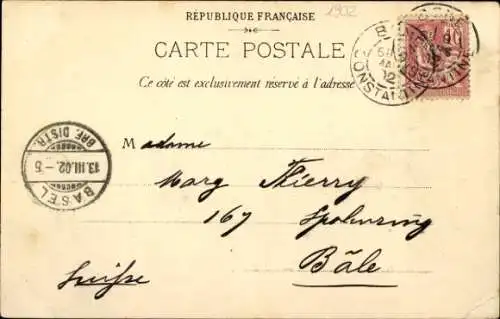 RÉPUBLIQUE FRANÇAISE
1902
CARTE POSTALE
Ce côté est exclusivement réservé à l'adresse
CONSTANTINE
BRF. DISTR.
13.III.02.-5
BASEL
Madame
Marg Thierry
167 Spalenring
Bâle
Suisse